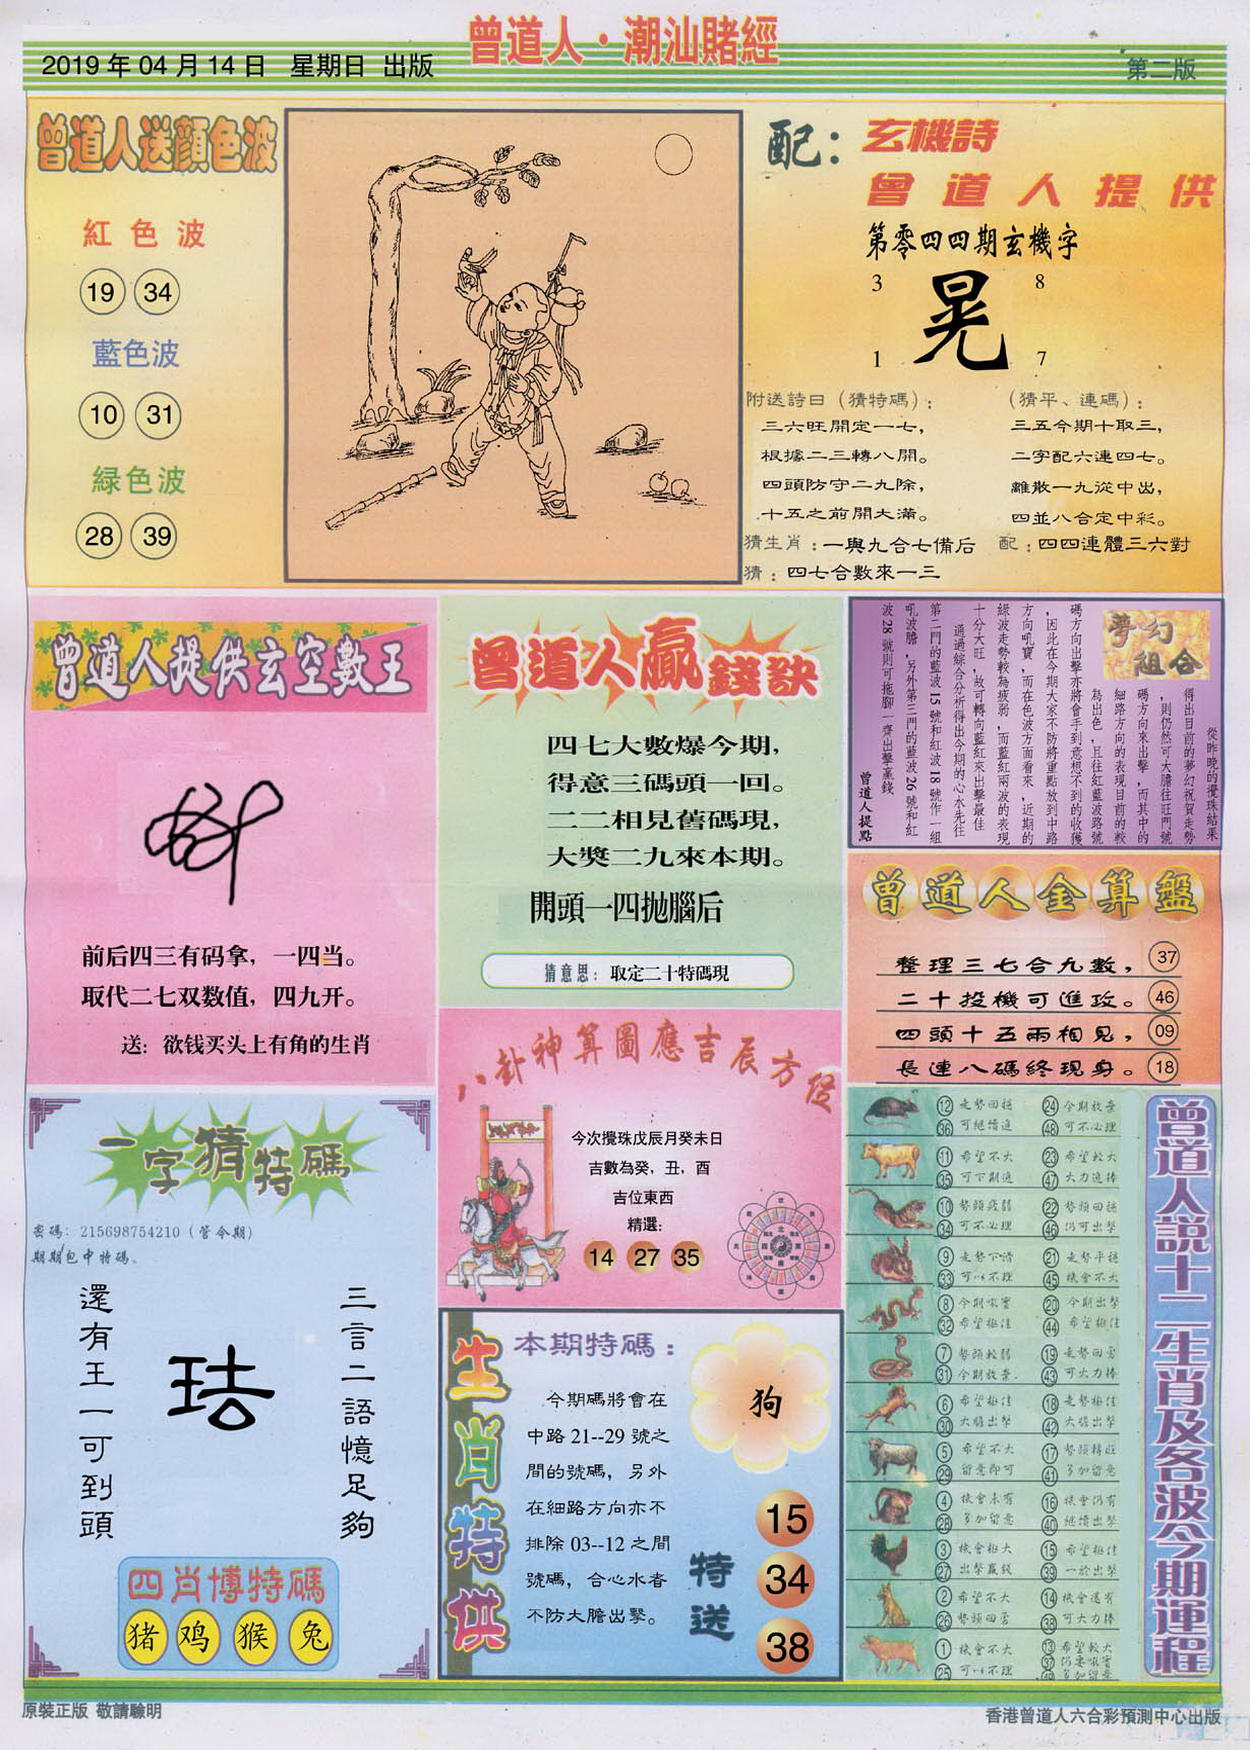 曾道人·潮汕賭經
2019年04月14日 星期日 出版
第二版
曾道人送顔色波
紅色波
19 34
藍色波
10 31
緑色波
28 39
配：
玄機詩
曾道人提供
第零四四期玄機字
3 8
晃
1 7
附送詩曰（猜特碼）：
三六旺開定一七，
根據二三轉八開。
四頭防守二九除，
十五之前開大滿。
（猜平、連碼）：
三五今期十取三，
二字配六連四七。
離散一九從中出，
四並八合定中彩。
猜生肖：一與九合七備后
配：四四連體三六對
猜：四七合數來一三
曾道人提供玄空數王
前后四三有码拿，一四当。
取代二七双数值，四九开。
送：欲钱买头上有角的生肖
曾道人贏錢訣
四七大數爆今期，
得意三碼頭一回。
二二相見舊碼現，
大獎二九來本期。
開頭一四拋腦后
猜意思：取定二十特碼現
夢幻
組合
從昨晚的攪珠結果
得出目前的夢幻祝賀走勢
，則仍然可大膽往旺門號
碼方向來出擊，而其中的
細路方向的表現目前的較
為出色，且往紅藍波路號
碼方向出擊亦將會手到意想不到的收獲
，因此在今期大家不防將重點放到中路
方向吼寶，而在色波方面看來，近期的
綠波走勢較為疲弱，而藍紅兩波的表現
十分大旺，故可轉向藍紅來出擊最佳
通過綜合分析得出今期的心水先往
第二門的藍波15號和紅波18號作一組
吼波膽，另外第三門的藍波26號和紅
波28號則可拖腳一齊出擊贏錢
曾道人提點
曾道人金算盤
整理三七合九數， 37
二十投機可進攻。 46
四頭十五兩相見， 09
長連八碼終現身。 18
八卦神算圖應吉辰方位
今次攪珠戊辰月癸未日
吉數為癸，丑，酉
吉位東西
精選：
14 27 35
一字猜特碼
密碼：215698754210（管令期）
期期包中特碼。
三言二語憶足夠
還有王一可到頭
四肖博特碼
猪 鸡 猴 兔
生肖特供
本期特碼：
狗
今期碼將會在
中路21--29號之
間的號碼，另外
在細路方向亦不
排除03--12之間
號碼，合心水者
不防大膽出擊。
特送
15
34
38
曾道人説十二生肖及各波今期運程
12 走勢回穩 24 今期放棄
36 可繼續進 48 可不必理
11 希望不大 23 希望較大
35 可下剔進 47 大力進棒
10 勢頭疲弱 22 勢頭回穩
34 可不必理 46 仍可出擊
9 走勢下滑 21 走勢平穩
33 可以不理 45 機會不大
8 今期吼寶 20 今期出擊
32 希望極佳 44 希望極佳
7 勢頭較弱 19 走勢回勇
31 今期放棄 43 可大力棒
6 希望極佳 18 走勢極佳
30 大膽出擊 42 大膽出擊
5 希望不大 17 勢頭轉旺
29 留意即可 41 多加留意
4 機會未有 16 機會仍有
28 多加留意 40 繼續出擊
3 機會極大 15 希望極佳
27 出擊贏錢 39 一於出擊
2 希望不大 14 機會還有
26 勢頭回勇 38 可大力棒
1 機會不大 13 希望較大
25 可以不理 37 仍要吼實
49 多加留意
原裝正版 敬請驗明
香港曾道人六合彩預測中心出版